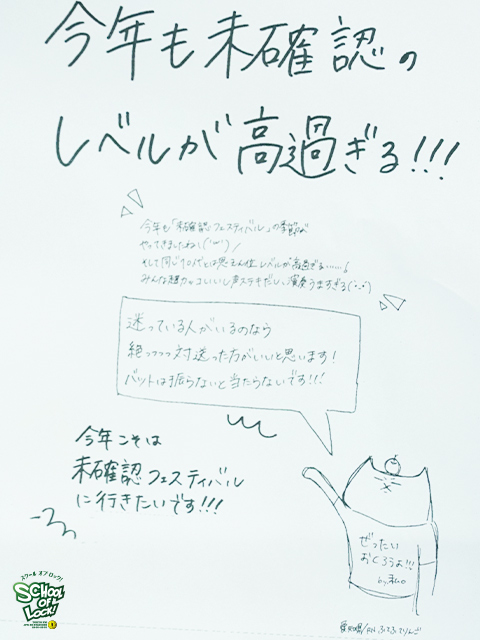 今年も未確認の
レベルが高過ぎる!!!
今年も「未確認フェスティバル」の季節が
やってきましたね!(˙꒳˙)/
そして同じ10代とは思えん位レベルが高過ぎる……!
みんな超カッコいいし声ステキだし、演奏うますぎる(˙-˙)
迷っている人がいるのなら
絶っっっっ対送った方がいいと思います!
バットは振らないと当たらないです!!!
今年こそは
未確認フェスティバル
に行きたいです!!!
ぜったい
おくろうよ!!!
by.私。
愛知県/RN ふてふてりんご
スクール オブ ロック!
SCHOOL
OF
LOCK!